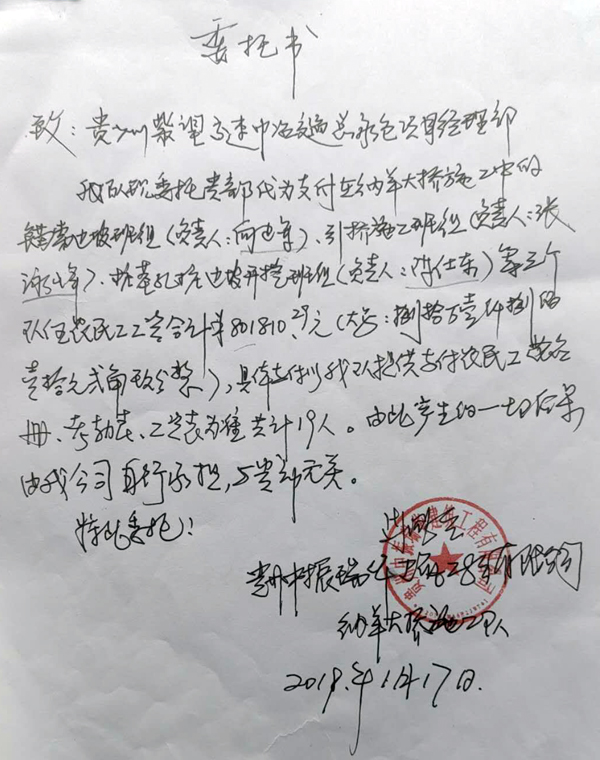 委托书
致：贵州紫望高速中冶交通总承包项目经理部
我队现委托贵部代为支付在纳羊大桥施工中的
锚索边坡班组（负责人：向边军）、引桥施工班组（负责人：张
泳峰）、桩基孔桩边坡开挖班组（负责人：陈仕东）等三个
队伍农民工工资合计￥801810.29元（大写：捌拾万壹仟捌佰
壹拾元贰角玖分整），具体支付以我队提供支付农民工花名
册、考勤表、工资表为准共计19人。由此产生的一切后果
由我公司自行承担，与贵部无关。
特此委托！
贵州中振瑞 工程 有限公司
纳羊大桥施工队
2018年1月17日.